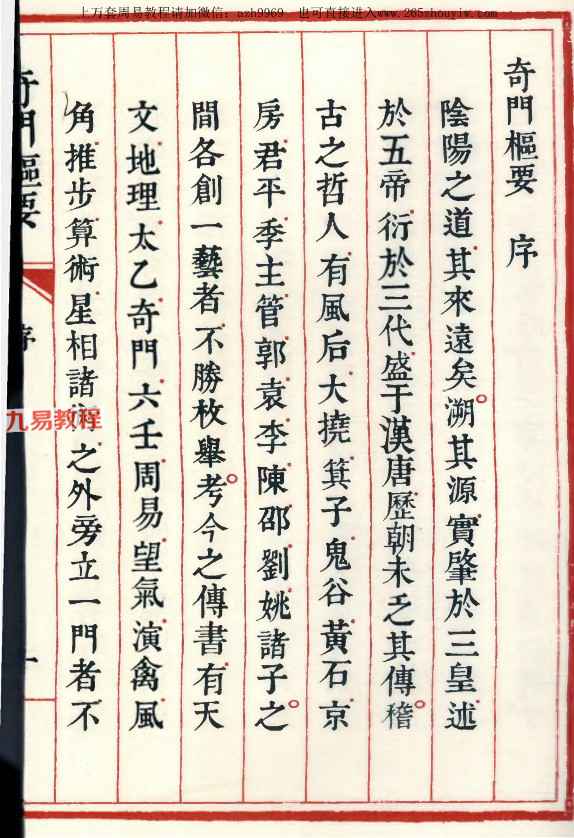 上万套周易教程请加微信：azh9969 也可直接进入www.265zhouyiw.com
奇門樞要 序
陰陽之道其來遠矣。溯其源實肇於三皇述
於五帝衍於三代盛于漢唐歷朝未乏其傳。稽
古之哲人有風后大撓箕子鬼谷黃石京
房君平季主管郭袁李陳邵劉姚諸子之。
間各創一藝者不勝枚舉。考今之傳書有天
文地理太乙奇門六壬周易望氣演禽風
角推步算術星相諸之外旁立一門者不
奇門樞要
序
一
九易教程